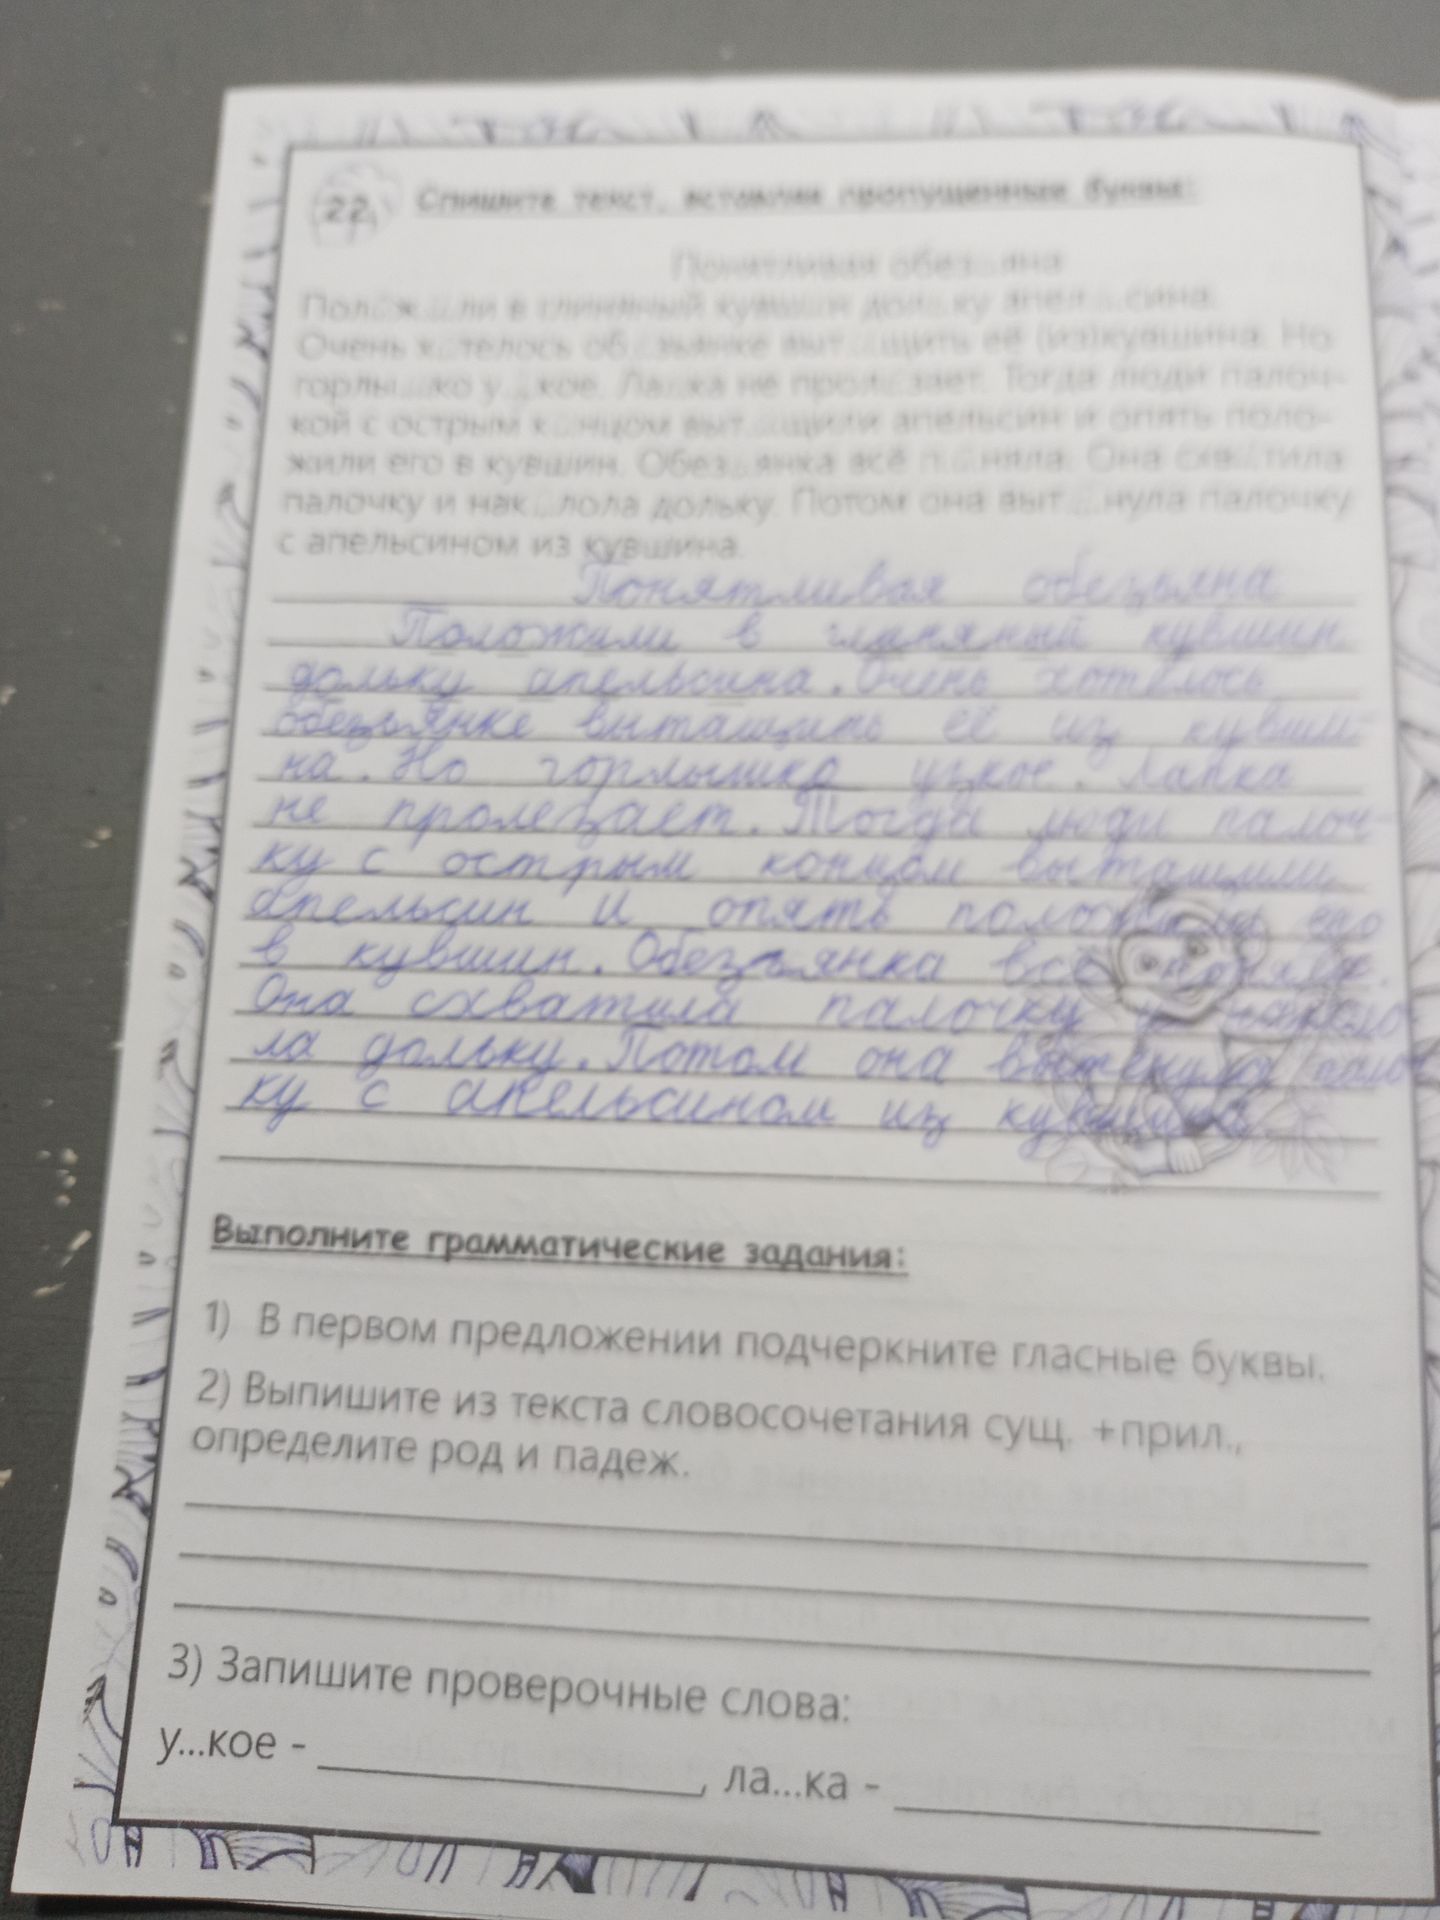 22 Спишите текст, вставляя пропущенные буквы:
Понятливая обез..яна
Пол..ж..ли в глиняный кувш..н дольку апел..сина.
Очень х..телось об..зьянке выт..щить её (из)кувшина. Но
горлы..ко у..кое. Ла..ка не прол..зает. Тогда люди палоч-
кой с острым к..нцом выт..щили апельсин и опять поло-
жили его в кувшин. Обез..янка всё п..няла. Она схв..тила
палочку и нак..лола дольку. Потом она выт..нула палочку
с апельсином из кувшина.
Понятливая обезьяна
Положили в глиняный кувшин
дольку апельсина. Очень хотелось
обезьянке вытащить её из кувши-
на. Но горлышко узкое. Лапка
не пролезает. Тогда люди палоч-
ку с острым концом вытащили
апельсин и опять положили его
в кувшин. Обезьянка всё поняла.
Она схватила палочку и наколо
ла дольку. Потом она вытянула палоч
ку с апельсином из кувшина.
Выполните грамматические задания:
1) В первом предложении подчеркните гласные буквы.
2) Выпишите из текста словосочетания сущ. +прил.,
определите род и падеж.
3) Запишите проверочные слова:
у...кое - ____________, ла...ка - ____________